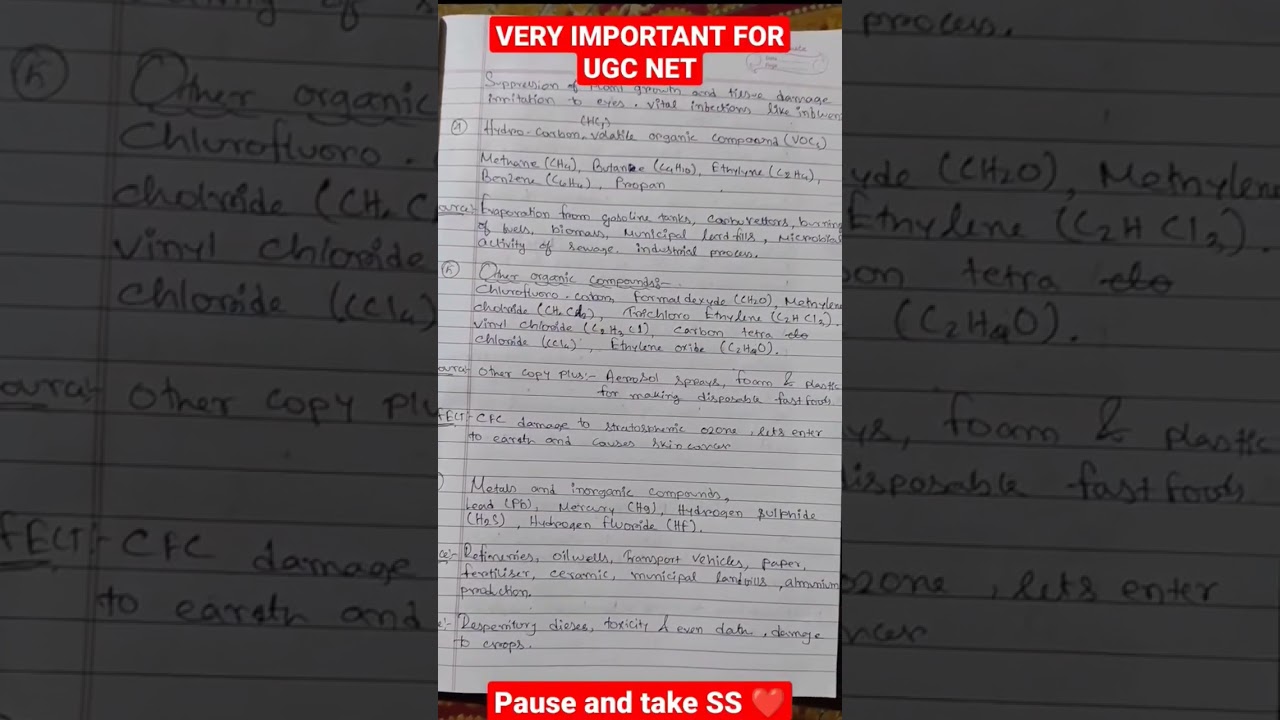 VERY IMPORTANT FOR
UGC NET
Suppression of plant growth and tissue damage
irritation to eyes. vital infections like
(HCs)
Hydro-carbon, volatile organic compound (VOCs)
Methane (CH4), Butane (C4H10), Ethylyne (C2H4),
Benzene (C6H6), Propan
Evaporation from gasoline tanks, carburettors, burning
of fuels, biomass, Municipal landfills, Microbial
activity of sewage, industrial process.
(h) Other organic compounds:-
Chlurofluoro-cabon, Formaldexyde (CH2O), Methylene
choloride (CH2Cl2), Trichloro Ethylene (C2HCl3).
vinyl chloride (C2H3Cl) carbon tetra
chloride (CCl4), Ethylene oxibe (C2H4O).
Other copy plus:- Aerosol sprays, foam & plastic
for making disposable fastfoods
FECT:- CFC damage to stratospheric ozone, lets enter
to earth and causes skin cancer
Metals and inorganic compounds,
Lead (Pb), Mercury (Hg), Hydrogen Sulphide
(H2S), Hydrogen Fluoride (Hf).
Refineries, oilwells, Transport vehicles, paper,
fertiliser, ceramic, municipal landfills, aluminium
production.
Respemitory dieses, toxicity & even dath, damage
to crops.
Pause and take SS ❤️